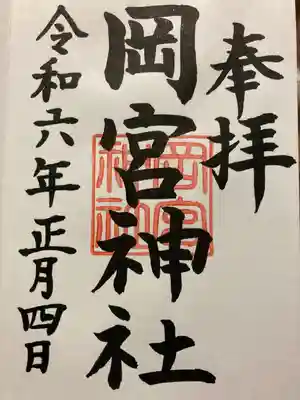 奉拝
岡宮神社
令和六年正月四日
岡宮
神社